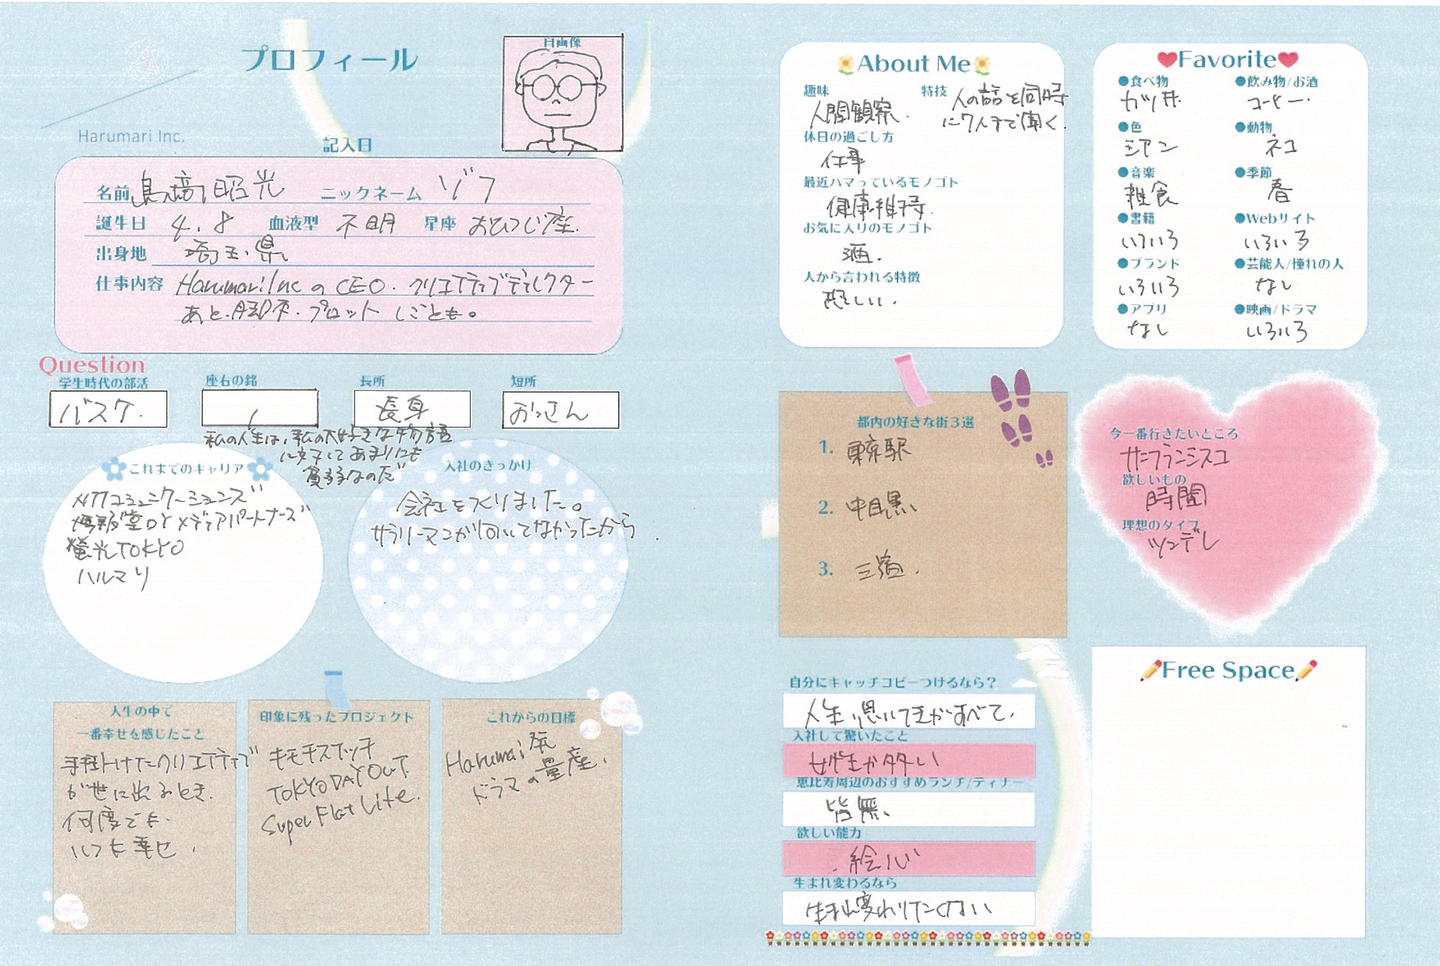 プロフィール
自画像
Harumari Inc.
記入日
名前 島﨑昭光 ニックネーム ゾフ
誕生日 4.8 血液型 不明 星座 おひつじ座.
出身地 埼玉県
仕事内容 Harumari Inc の CEO. クリエイティブディレクター
あと. プロット しごとも。
Question
学生時代の部活 座右の銘 長所 短所
バスケ. 長身 おっさん
私の人生は、私の大好きな物語
にとってあまりにも
だ"
これまでのキャリア
メガコミュニケーションズ
博報堂DYメディアパートナーズ
螢光TOKYO
ハルマリ
入社のきっかけ
会社をつくりました。
サラリーマンが向いてなかったから.
人生の中で
一番幸せを感じたこと
手掛けたクリエイティブ
が世に出るとき.
何度でも.
いつも幸せ.
印象に残ったプロジェクト
キモチスイッチ
TOKYO DAY OUT
Super Flat Life.
これからの目標
Harumari発
ドラマの量産.
About Me
趣味 特技
人間観察. 人の話を同時
に7人まで聞く.
休日の過ごし方
仕事
最近ハマっているモノゴト
健康維持.
お気に入りのモノゴト
酒.
人から言われる特徴
恐しい.
Favorite
●食べ物 ●飲み物/お酒
カツ丼. コーヒー.
●色 ●動物
シアン ネコ
●音楽 ●季節
雑食 春
●書籍 ●Webサイト
いろいろ いろいろ
●ブランド ●芸能人/憧れの人
いろいろ なし
●アプリ ●映画/ドラマ
なし いろいろ
都内の好きな街3選
1. 東京駅
2. 中目黒.
3. 三宿.
今一番行きたいところ
サンフランシスコ
欲しいもの
時間
理想のタイプ
ツンデレ
自分にキャッチコピーつけるなら?
人生、思いつきがすべて.
入社して驚いたこと
女性が多い
恵比寿周辺のおすすめランチ/ディナー
皆無.
欲しい能力
絵心
生まれ変わるなら
生まれ変わりたくない
Free Space